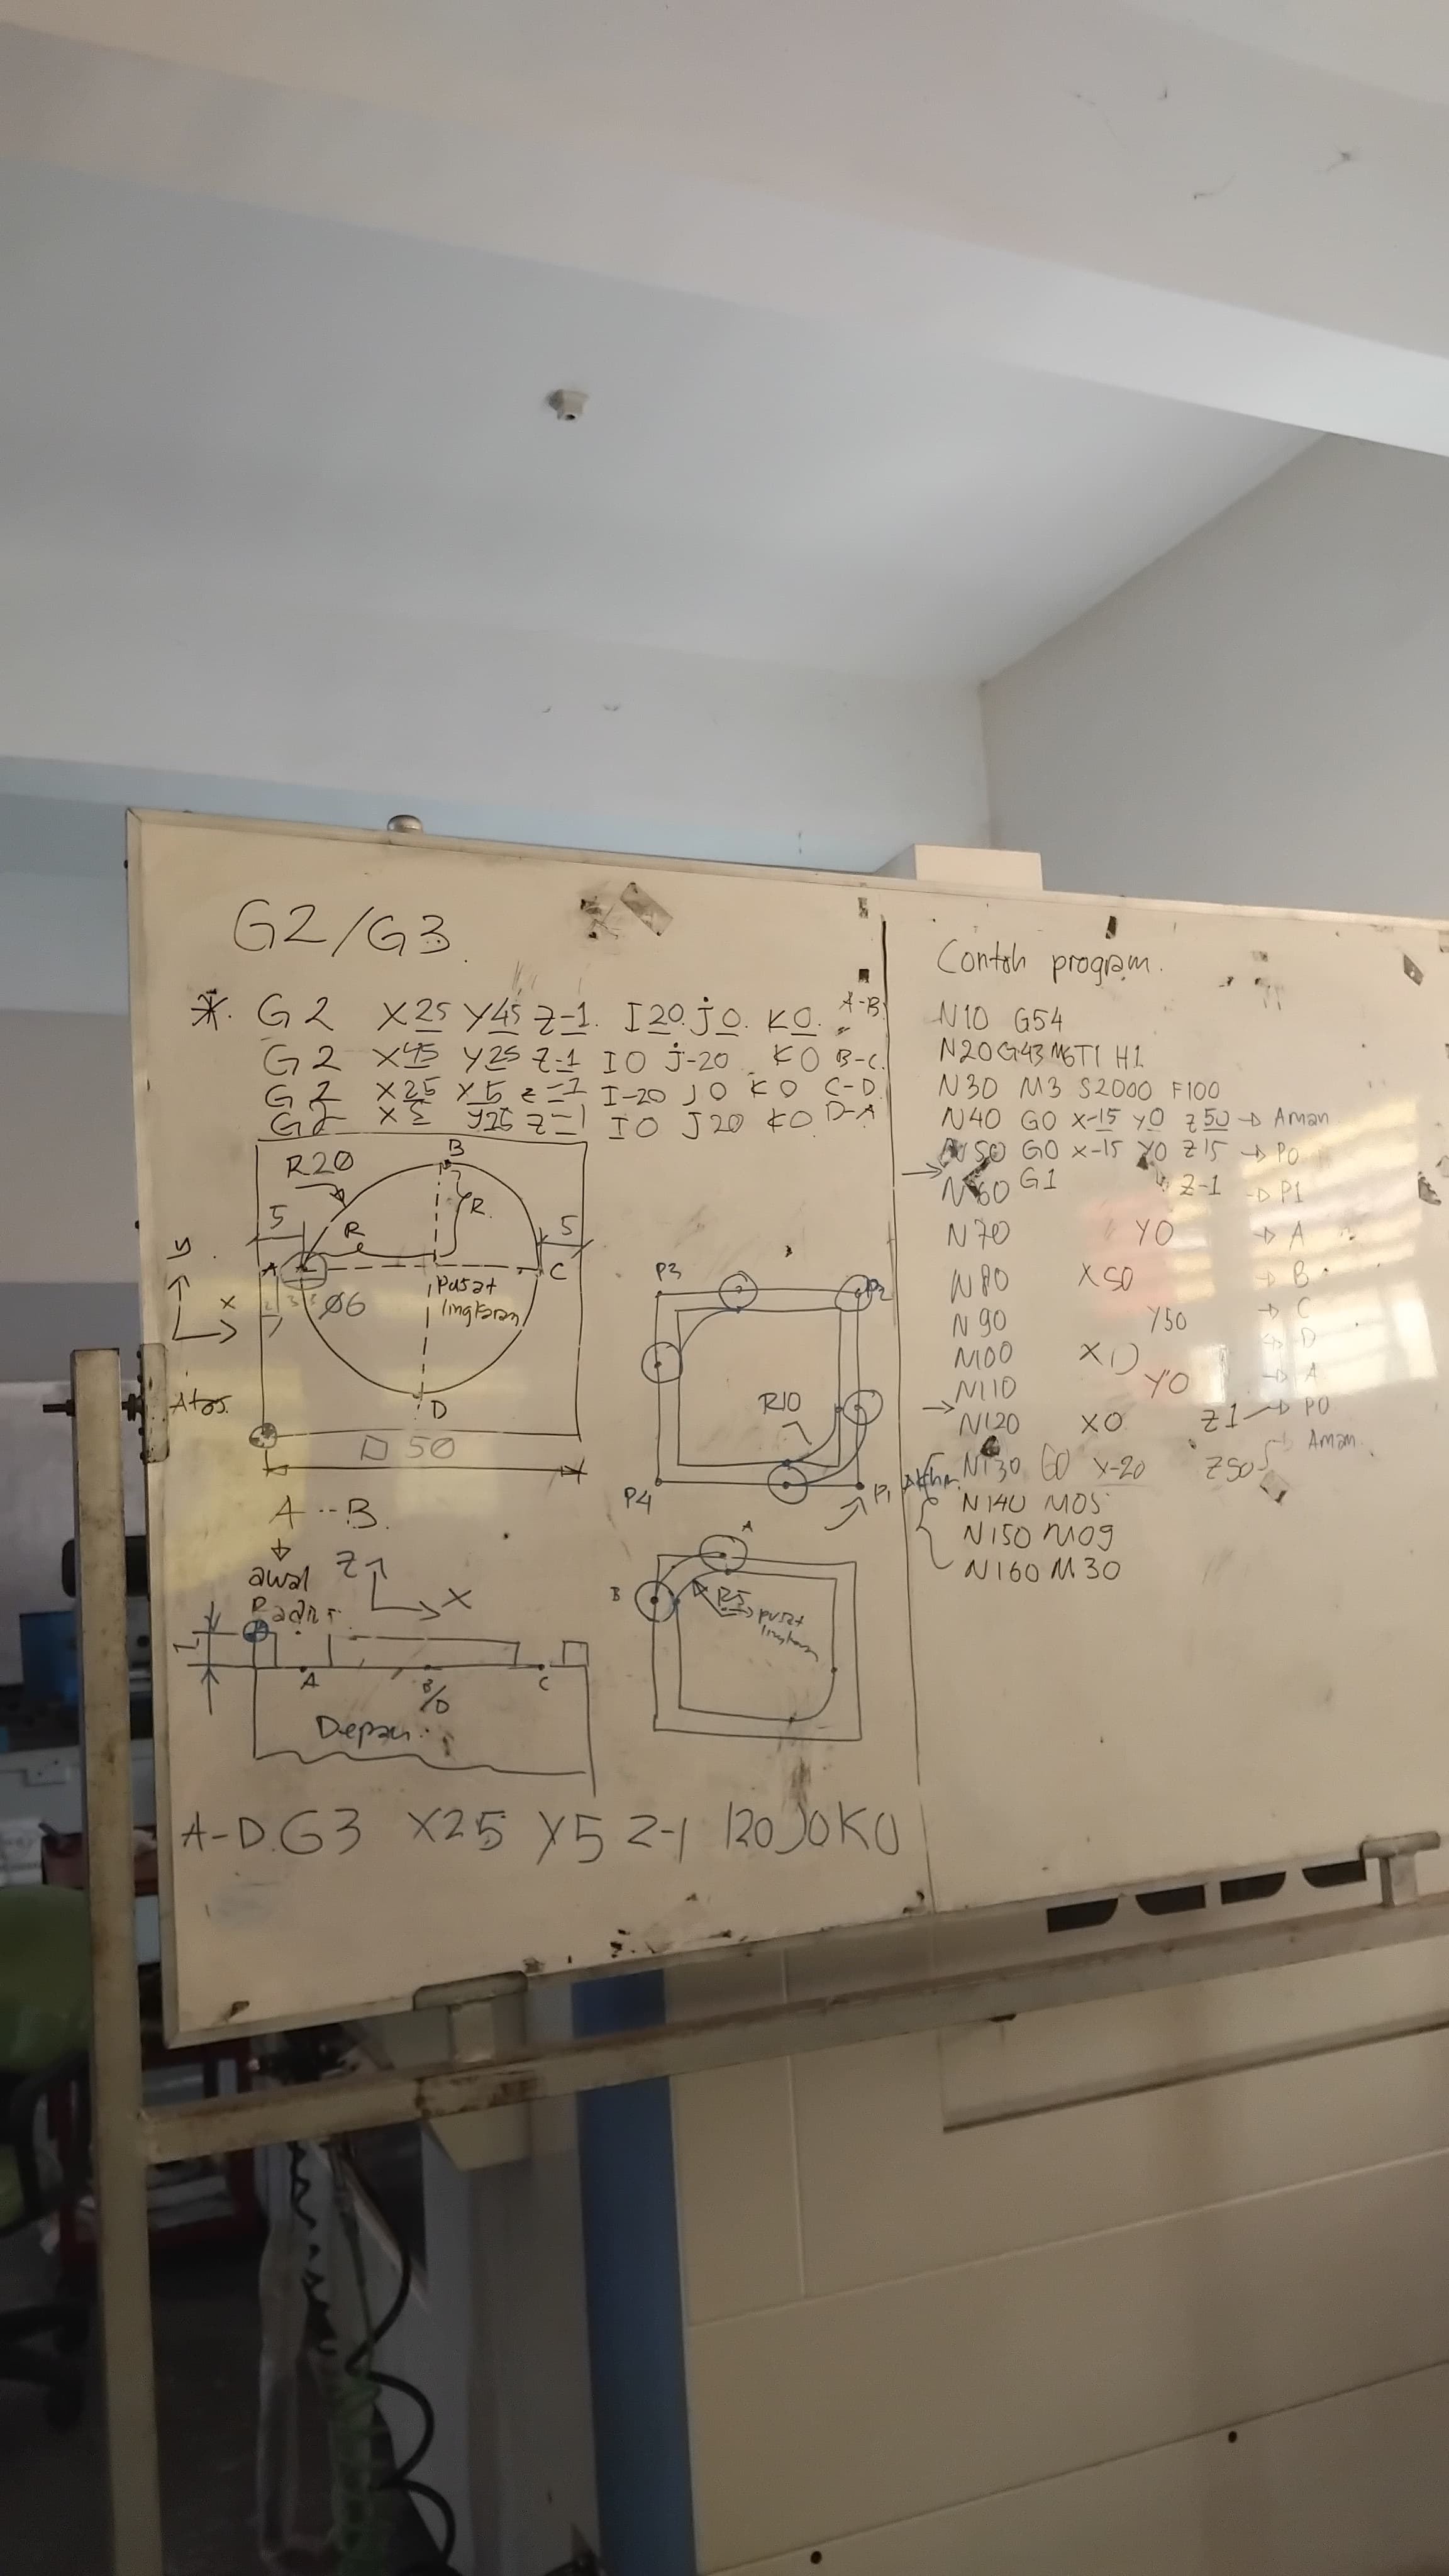 G2/G3
*. G2 X25 Y45 Z-1. I20. J0. K0. A-B
G2 X45 Y25 Z-1 I0 J-20 K0 B-C
G2 X25 Y5 Z-1 I-20 J0 K0 C-D
G2 X5 Y25 Z-1 I0 J20 K0 D-A
B
R20
R
5
R
5
A
C
y
x
Ø6
pusat
lingkaran
D
Atas.
□ 50
A--B.
awal
Radius
Z
X
1
A
B/D
C
Depan
A-D. G3 X25 Y5 Z-1 I20 J0 K0
P3
P2
R10
P4
P1
A
B
R5
pusat
lingkaran
Contoh program.
N10 G54
N20 G43 M6 T1 H1
N30 M3 S2000 F100
N40 G0 X-15 Y0 Z50 → Aman
N50 G0 X-15 Y0 Z15 → P0
→ N60 G1 Z-1 → P1
N70 Y0 → A
N80 X50 → B
N90 Y50 → C
N100 X0 → D
N110 Y0 → A
→ N120 X0 Z1 → P0
Aman
N130 G0 X-20 Z50
N140 M05
N150 M09
N160 M30